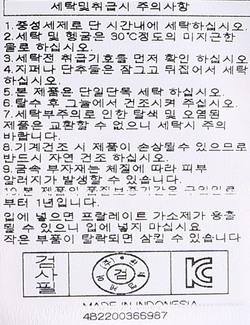 세탁및취급시 주의사항
1. 중성세제로 단 시간내에 세탁하십시오.
2. 세탁 및 헹굼은 30°C정도의 미지근한
물로 하십시오.
3. 세탁전 취급기호를 먼저 확인 하십시오
4. 지퍼나 단추들은 잠그고 뒤집어서 세탁
하십시오.
5. 본 제품은 단일단독 세탁 하십시오
6. 탈수 후 그늘에서 건조시켜 주십시오
7. 세탁부주의로 인한 탈색 및 오염된
제품은 교환할 수 없으니 세탁시 주의
바랍니다.
8. 기계건조 시 제품이 손상될수 있으므로
반드시 자연 건조 하십시오.
9. 금속 부자재는 체질에 따라 피부
알러지가 발생할 수 있습니다.
10. 본 제품의 품질보증기간은 구입일로
부터 1년입니다.
입에 넣으면 프탈레이트 가소제가 용출
될 수 있으니 입에 넣지 마십시요
작은 부품이 탈락되면 삼킬 수 있습니다
검
사
필
검
KC
MADE IN INDONESIA
4B2200366987